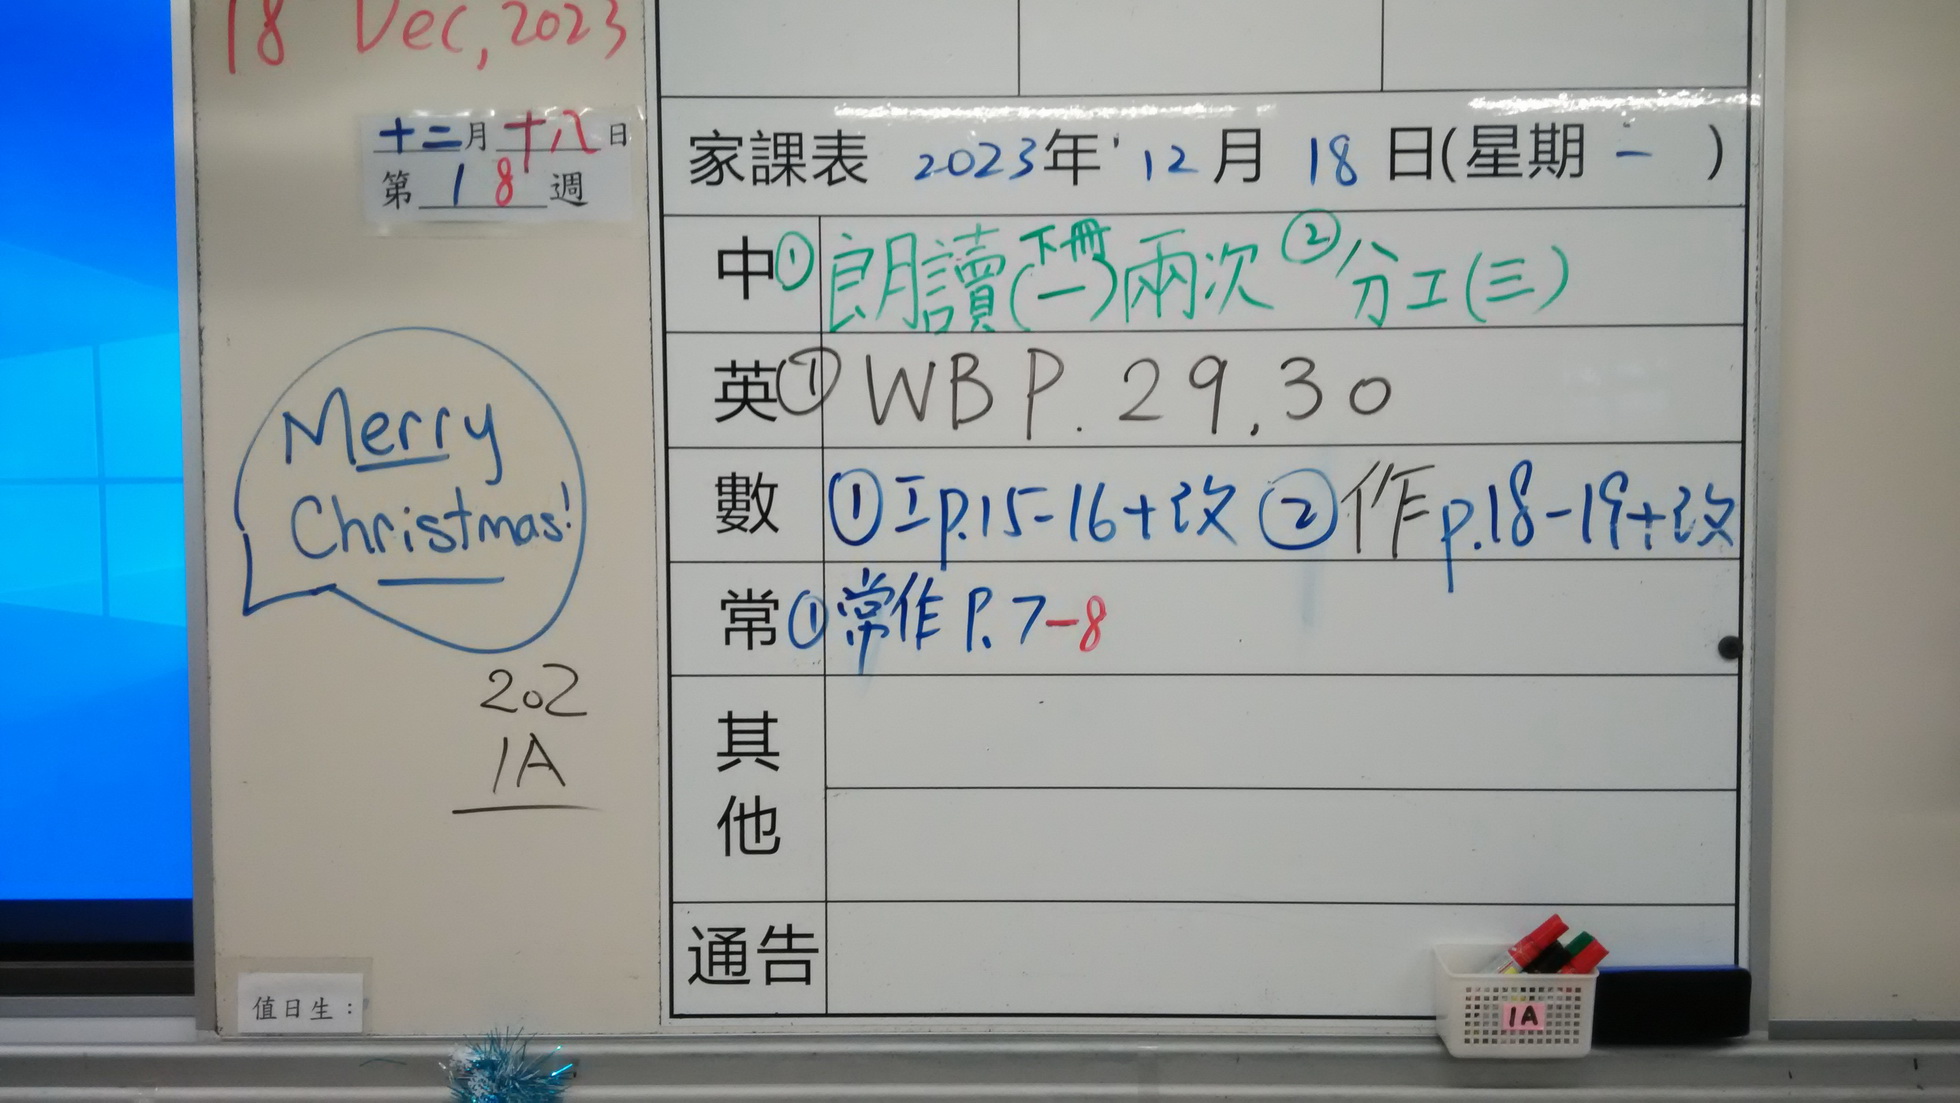 18 Dec, 2023
十二月十八日
第 18 週
Merry
Christmas!
202
1A
值日生：
家課表 2023年 12月 18日(星期一)
中 ①朗讀(下冊(一))兩次 ②分工(三)
英 ① WB P. 29, 30
數 ①工p.15-16+改 ②作p.18-19+改
常 ①常作 P. 7-8
其他
通告
1A